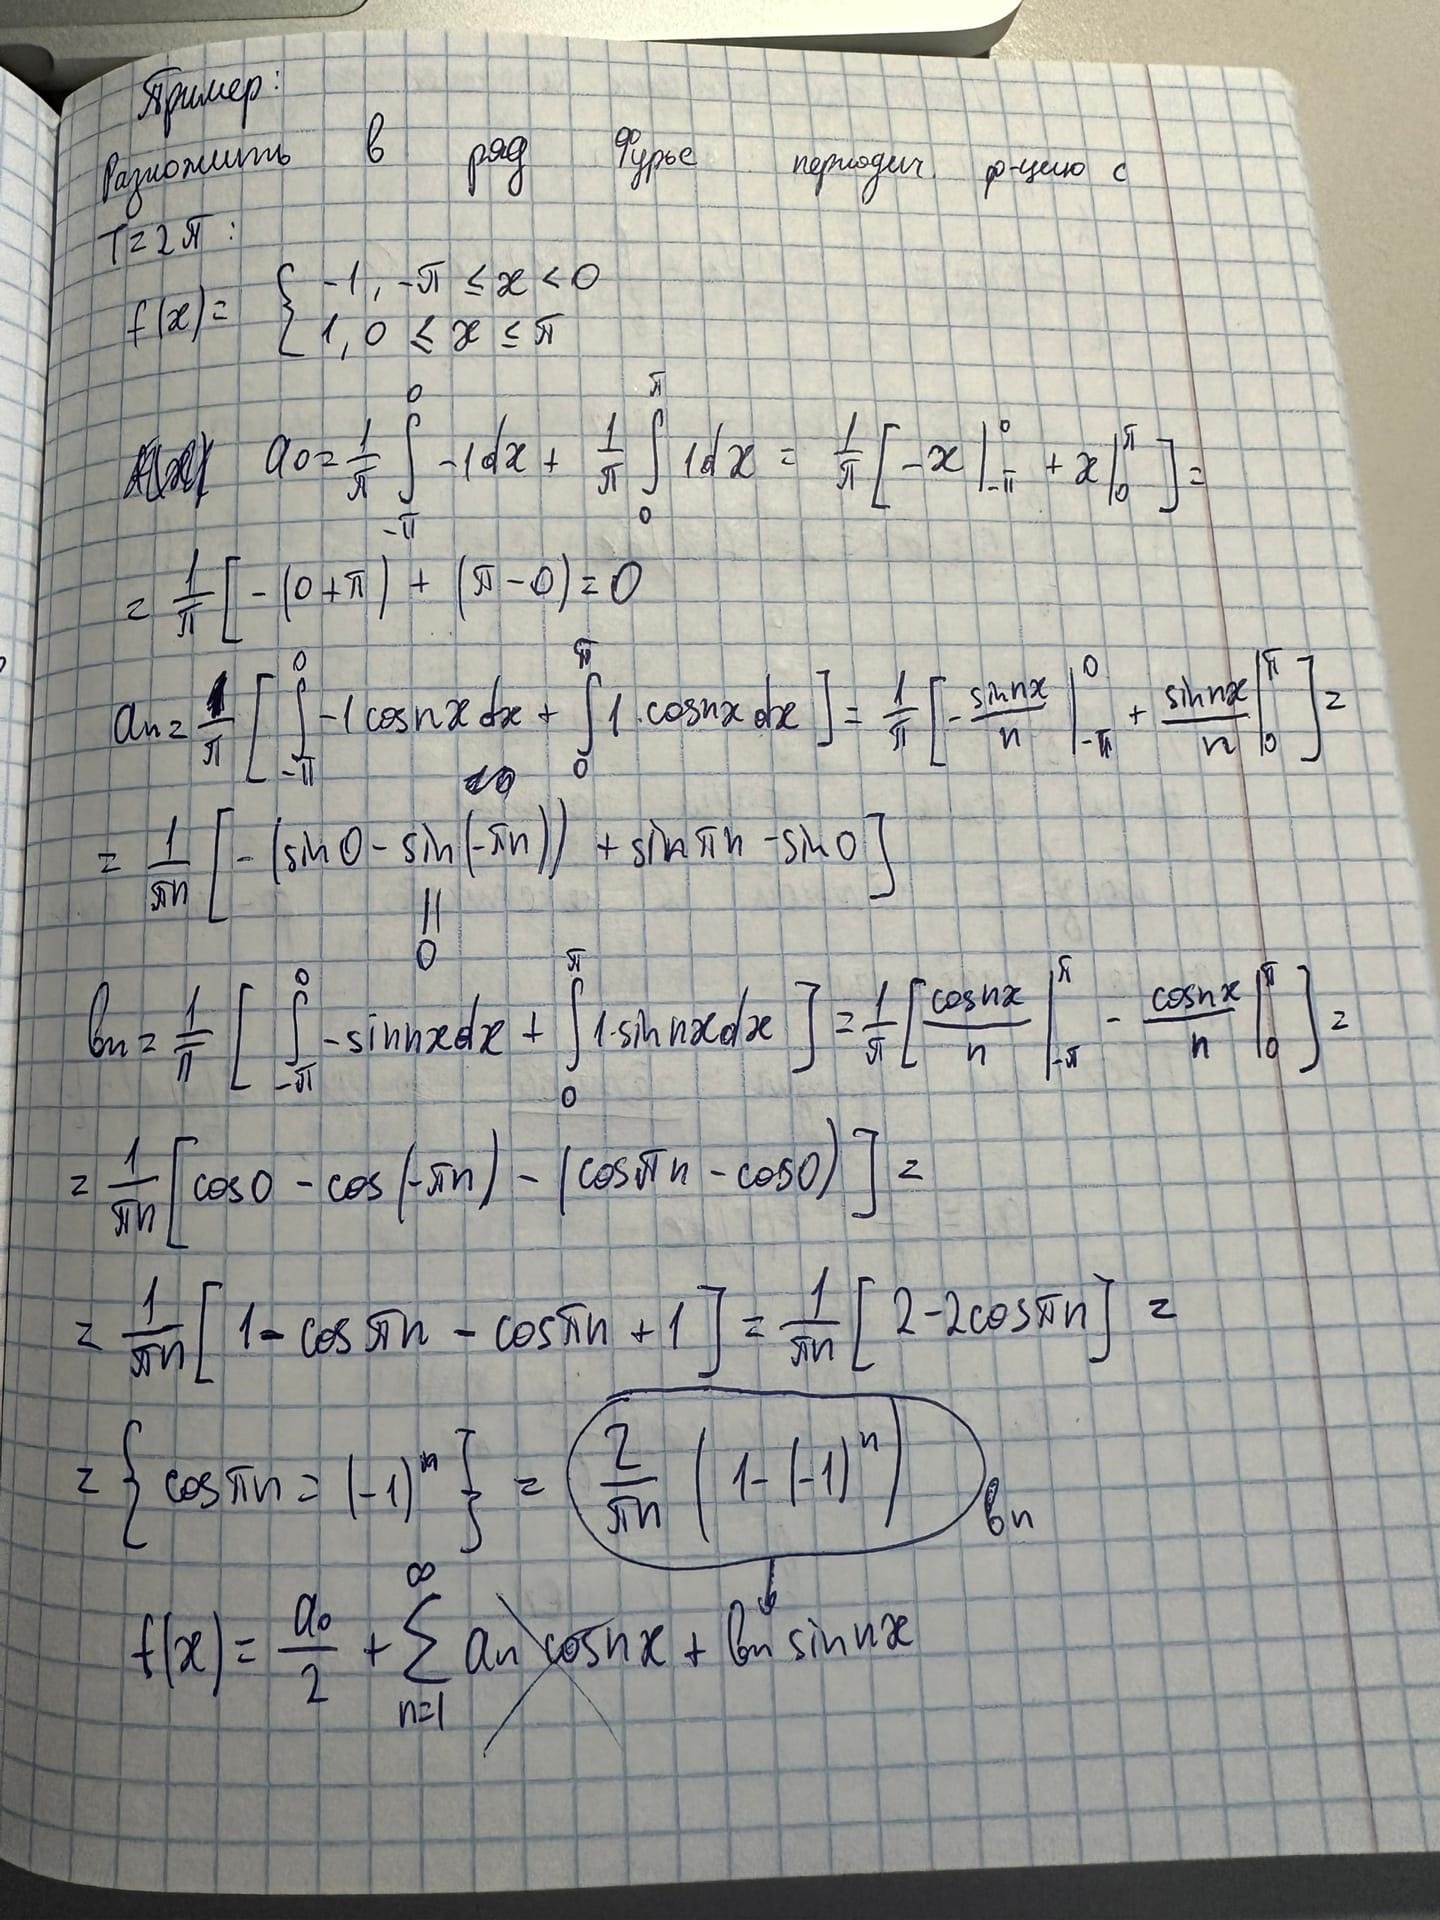 Пример:
Разложить в ряд Фурье периодич. ф-цию с
T=2π:
f(x)= { -1, -π ≤ x < 0
1, 0 ≤ x ≤ π
a0 = 1/π ∫_{-π}^{0} -1dx + 1/π ∫_{0}^{π} 1dx = 1/π [ -x |_{-π}^{0} + x |_{0}^{π} ] =
= 1/π [ -(0+π) + (π-0) = 0
an = 1/π [ ∫_{-π}^{0} -1 cosnx dx + ∫_{0}^{π} 1·cosnx dx ] = 1/π [ - sinnx/n |_{-π}^{0} + sinnx/n |_{0}^{π} ] =
= 1/πn [ -(sin0 - sin(-πn)) + sinπn - sin0 ]
||
0
bn = 1/π [ ∫_{-π}^{0} -sinnxdx + ∫_{0}^{π} 1·sinnxdx ] = 1/π [ cosnx/n |_{-π}^{π} - cosnx/n |_{0}^{π} ] =
= 1/πn [ cos0 - cos(-πn) - (cosπn - cos0) ] =
= 1/πn [ 1 - cosπn - cosπn + 1 ] = 1/πn [ 2 - 2cosπn ] =
= { cosπn = (-1)^n } = 2/πn (1-(-1)^n) bn
f(x) = a0/2 + ∑_{n=1}^{∞} an cosnx + bn sinnx